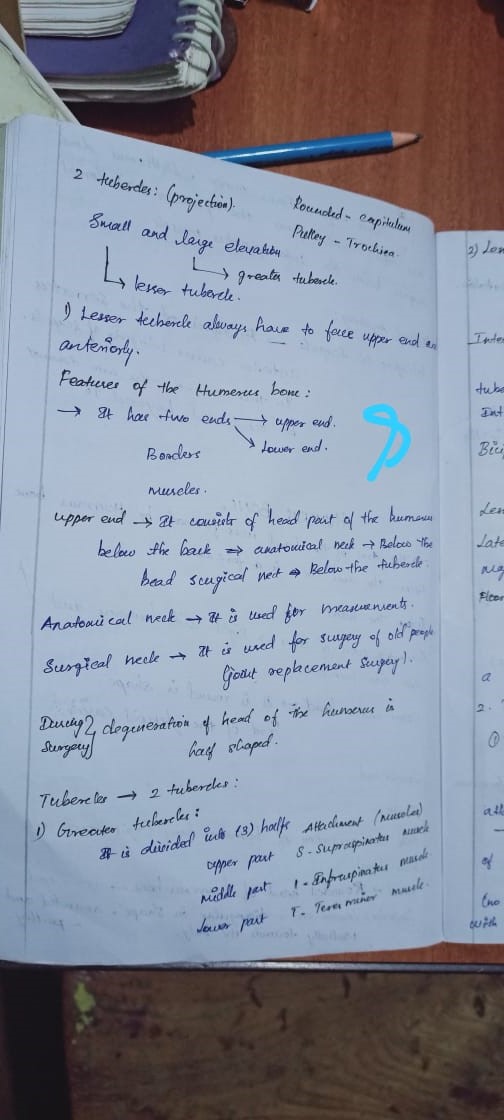 2 tubercles: (projection).
Rounded - capitulum
Pulley - Trochlea.
Small and large elevation
greater tubercle.
lesser tubercle.
1) Lesser tubercle always have to face upper end an
anteriorly.
Features of the Humerus bone:
→ It has two ends → upper end.
Lower end.
Borders
muscles.
upper end → It consists of head part of the humerus
below the back ⇒ anatomical neck → Below the
head surgical neck ⇒ Below the tubercle
Anatomical neck → It is used for measurements.
Surgical neck → It is used for surgery of old people
(joint replacement surgery).
During surgery} degeneration of head of the humerus is
half shaped.
Tubercles → 2 tubercles:
1) Greater tubercles:
It is divided into (3) halfs Attachment (muscles)
upper part S - Supraspinatus muscle
middle part I - Infraspinatus muscle
lower part T - Teres minor muscle.
2) Len
Inte
tube
Int
Bici
Len
Late
ma
Floor
a
2.
①
att
of
(no
with